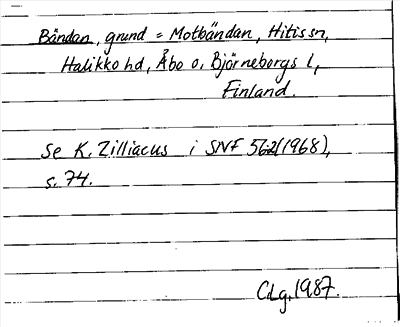 Bändan, grund = Motbändan, Hitis sn,
Halikko hd, Åbo o. Björneborgs l,
Finland.
Se K. Zilliacus i SNF 562 (1968),
s. 74.
CLg. 1987.